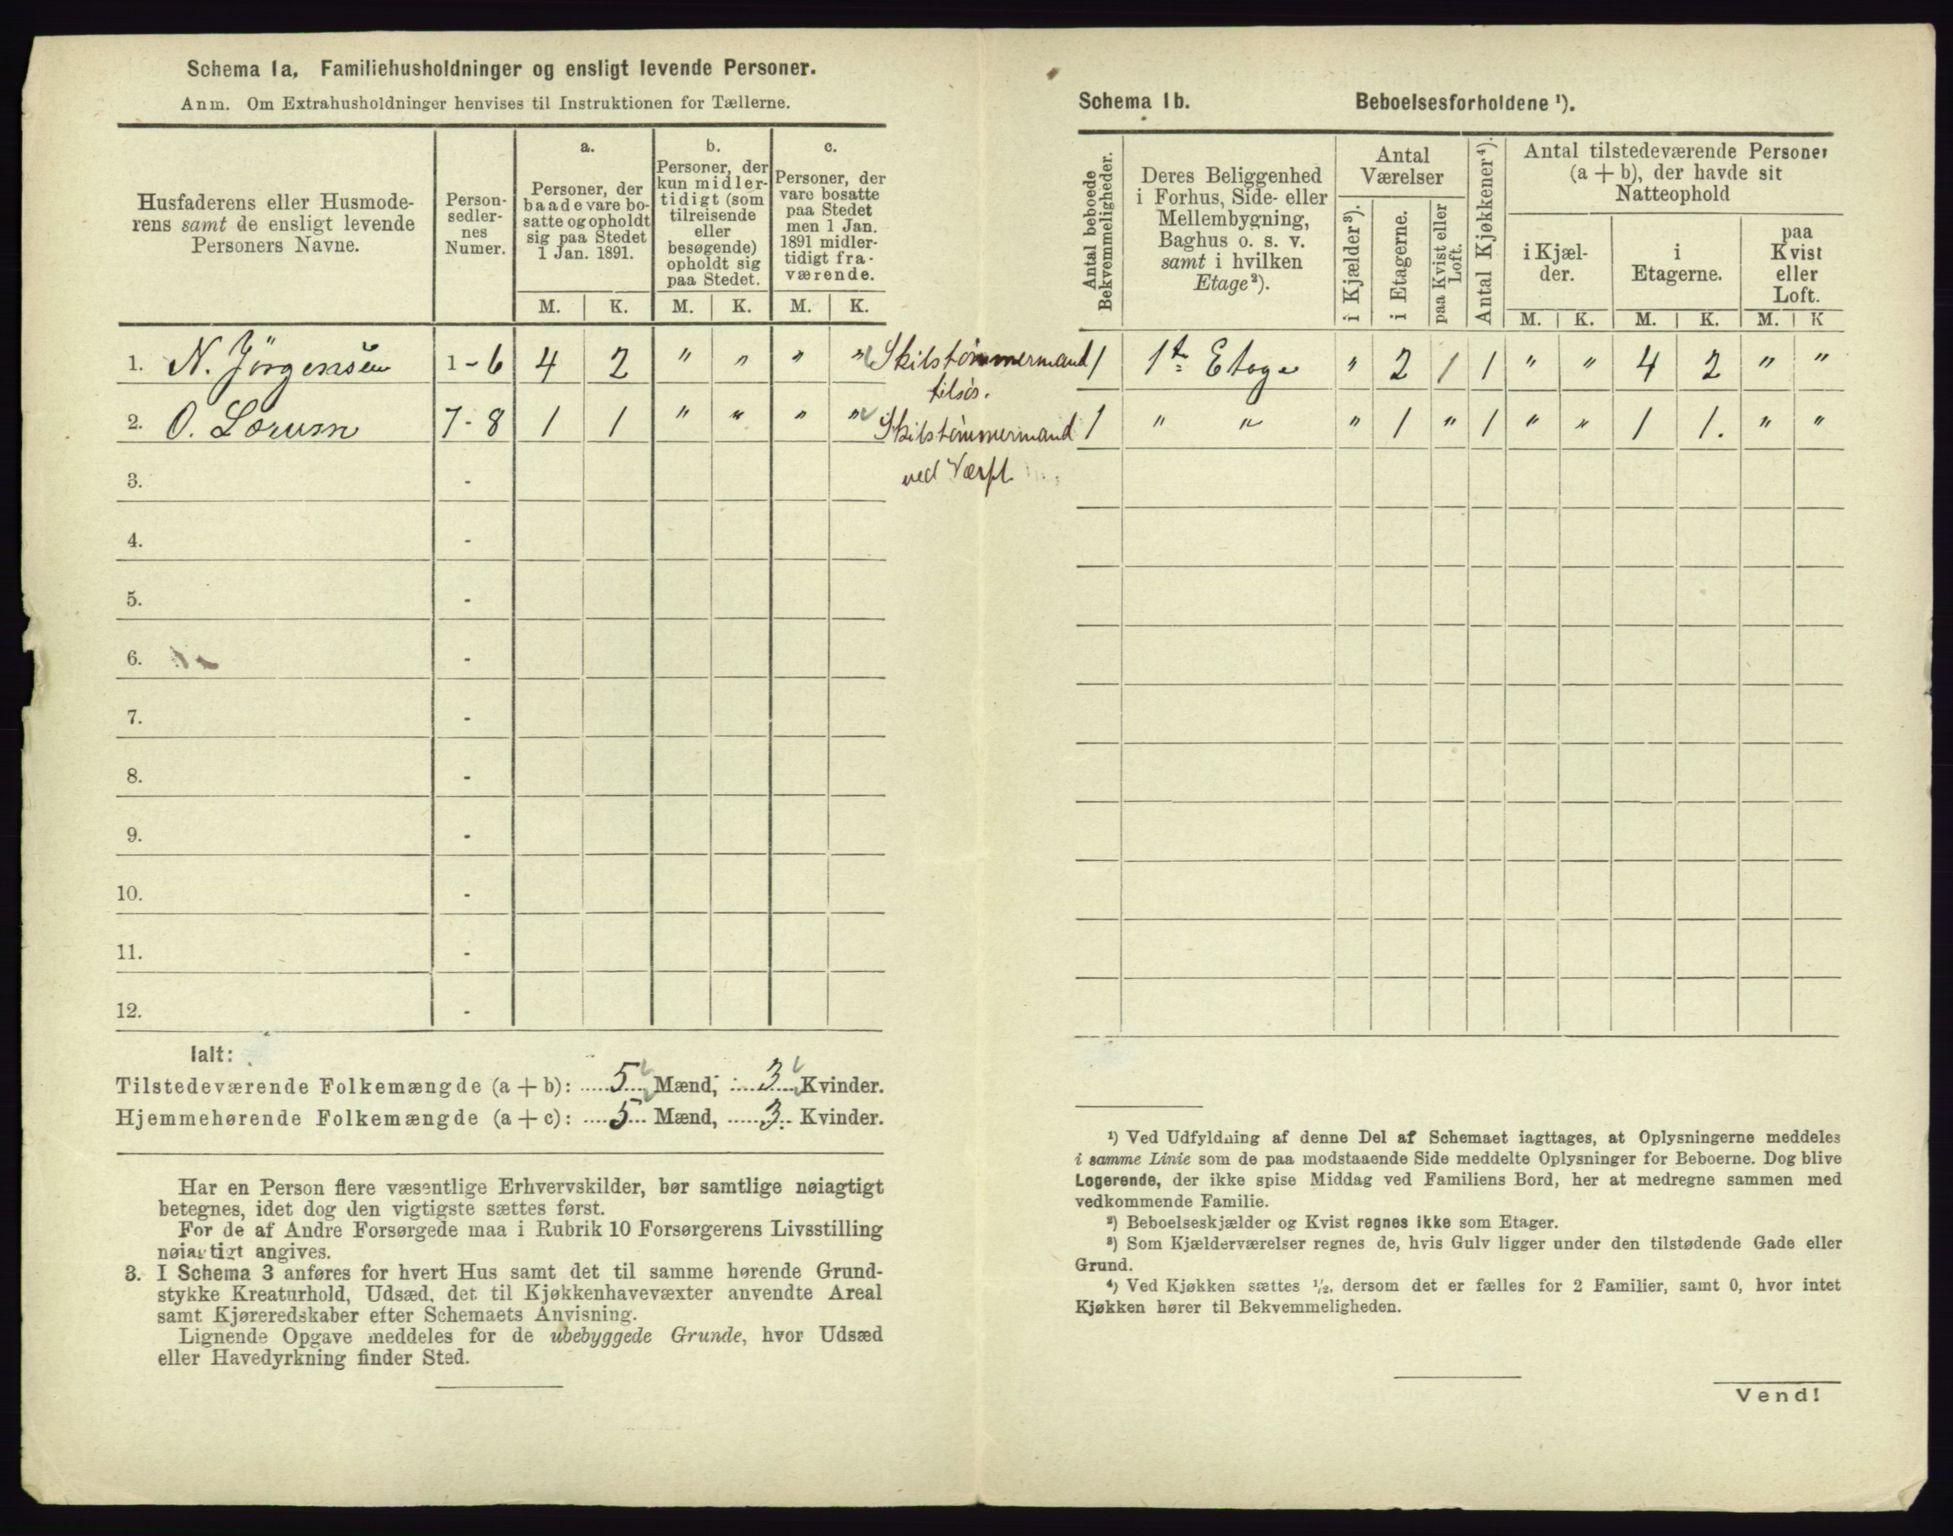 Schema 1a. Familiehusholdninger og ensligt levende Personer.
Anm. Om Extrahusholdninger henvises til Instruktionen for Tællerne.
Husfaderens eller Husmode-
rens samt de ensligt levende
Personers Navne.
Person-
sedler-
nes
Numer.
a.
Personer, der
baade vare bo-
satte og opholdt
sig paa Stedet
1 Jan. 1891.
b.
Personer, der
kun midler-
tidigt (som
tilreisende
eller
besøgende)
opholdt sig
paa Stedet.
c.
Personer, der
vare bosatte
paa Stedet
men 1 Jan.
1891 midler-
tidigt fra-
værende.
M. K. M. K. M. K.
1. N. Jörgensen 1-6 4 2 " " " " Skibstømmermand
tilsös.
2. O. Lorum 7-8 1 1 " " " " Skibstømmermand
ved Værft
3. -
4. -
5. -
6. -
7. -
8. -
9. -
10. -
11. -
12. -
Ialt:
Tilstedeværende Folkemængde (a + b): 5 Mænd, 3 Kvinder.
Hjemmehørende Folkemængde (a + c): 5 Mænd, 3 Kvinder.
Har en Person flere væsentlige Erhvervskilder, bør samtlige nøiagtigt
betegnes, idet dog den vigtigste sættes først.
For de af Andre Forsørgede maa i Rubrik 10 Forsørgerens Livsstilling
nøiagtigt angives.
3. I Schema 3 anføres for hvert Hus samt det til samme hørende Grund-
stykke Kreaturhold, Udsæd, det til Kjøkkenhavevæxter anvendte Areal
samt Kjøreredskaber efter Schemaets Anvisning.
Lignende Opgave meddeles for de ubebyggede Grunde, hvor Udsæd
eller Havedyrkning finder Sted.
Schema 1b. Beboelsesforholdene ¹).
Antal beboede
Bekvemmeligheder.
Deres Beliggenhed
i Forhus, Side- eller
Mellembygning,
Baghus o. s. v.
samt i hvilken
Etage²).
Antal
Værelser
i Kjælder³).
i Etagerne.
paa Kvist eller
Loft.
Antal Kjøkkener⁴).
Antal tilstedeværende Personer
(a + b), der havde sit
Natteophold
i Kjæl-
der.
i
Etagerne.
paa
Kvist
eller
Loft.
M. K. M. K. M. K
1 1te Etage " 2 1 1 " " 4 2 " "
1 " " " 1 " 1 " " 1 1. " "
¹) Ved Udfyldning af denne Del af Schemaet iagttages, at Oplysningerne meddeles
i samme Linie som de paa modstaaende Side meddelte Oplysninger for Beboerne. Dog blive
Logerende, der ikke spise Middag ved Familiens Bord, her at medregne sammen med
vedkommende Familie.
²) Beboelseskjælder og Kvist regnes ikke som Etager.
³) Som Kjælderværelser regnes de, hvis Gulv ligger under den tilstødende Gade eller
Grund.
⁴) Ved Kjøkken sættes ½, dersom det er fælles for 2 Familier, samt 0, hvor intet
Kjøkken hører til Bekvemmeligheden.
Vend!